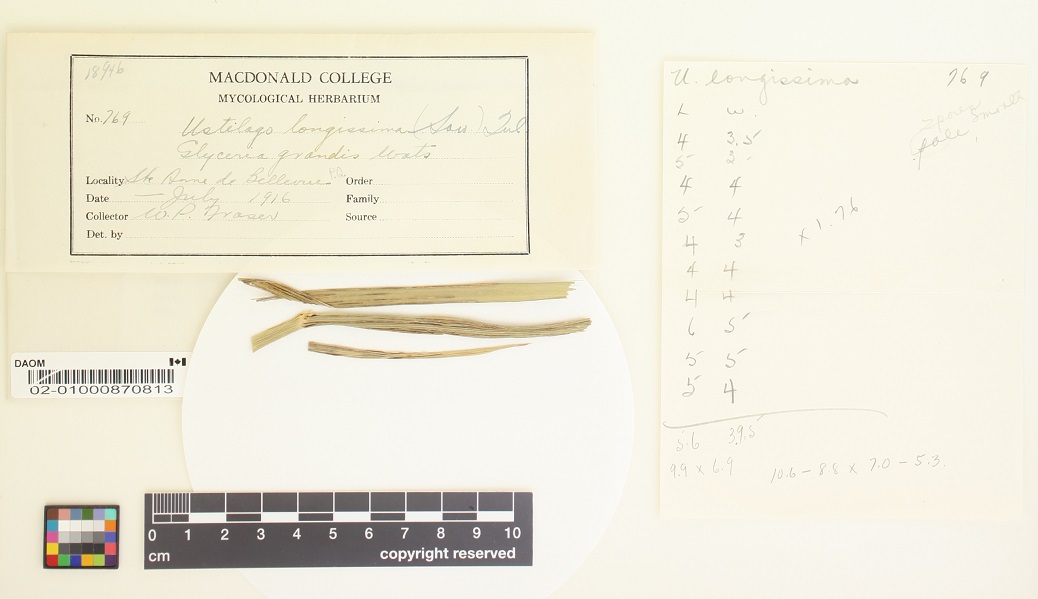 18946
MACDONALD COLLEGE
MYCOLOGICAL HERBARIUM
No. 769
Ustilago longissima (Sow) Tul.
Glyceria grandis Wats
Locality Ste Anne de Bellevue P.Q.
Order
Date — July 1916
Family
Collector W.P. Fraser
Source
Det. by
DAOM
02-01000870813
0 1 2 3 4 5 6 7 8 9 10
cm
copyright reserved
U. longissima 769
L W.
spores smooth
pale,
4 3.5
5 3
4 4
5 4
4 3
x 1.76
4 4
4 4
6 5
5 5
5 4
5.6 39.5
9.9 x 6.9 10.6 - 8.8 x 7.0 - 5.3.